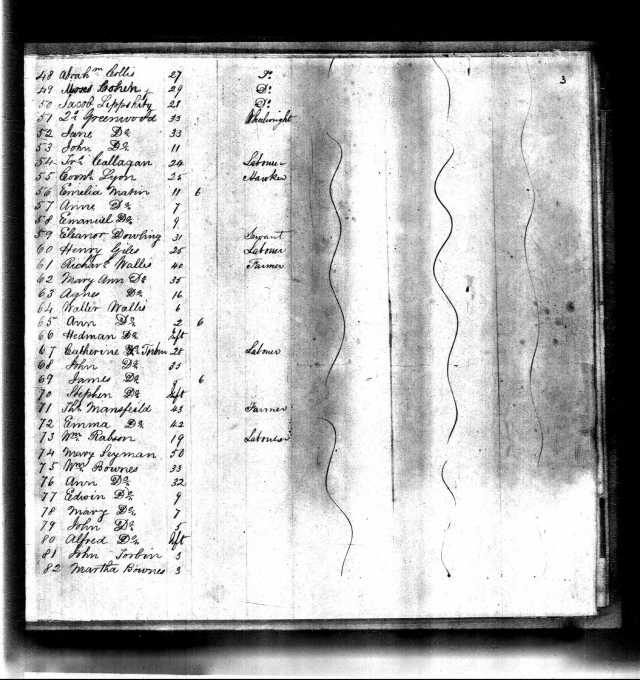 3
48 Collis 27 Do
49 Moses Cohen 29 Do
50 Jacob Lippshity 28 Do
51 Greenwood 33 Wheelwright
52 Jane Do 33
53 John Do 11
54 Callagan 24 Labourer
55 Lyon 25 Hawker
56 Emelia Matin 11 6
57 Anne Do 7
58 Emanuel Do 9
59 Eleanor Dowling 31 Servant
60 Henry Giles 25 Labourer
61 Richard Wallis 40 Farmer
62 Mary Ann Do 35
63 Agnes Do 16
64 Walter Wallis 6
65 Ann Do 2 6
66 Hedman Do Inft
67 Catherine 28 Labourer
68 John Do 35
69 James Do 6
70 Stephen Do Inft
71 Thos Mansfeild 43 Farmer
72 Emma Do 42
73 Wm Rabson 19 Labourer
74 Mary Leyman 50
75 Wm Bownes 33
76 Ann Do 32
77 Edwin Do 9
78 Mary Do 7
79 John Do 5
80 Alfred Do Inft
81 John Torbin 3
82 Martha Bownes 3